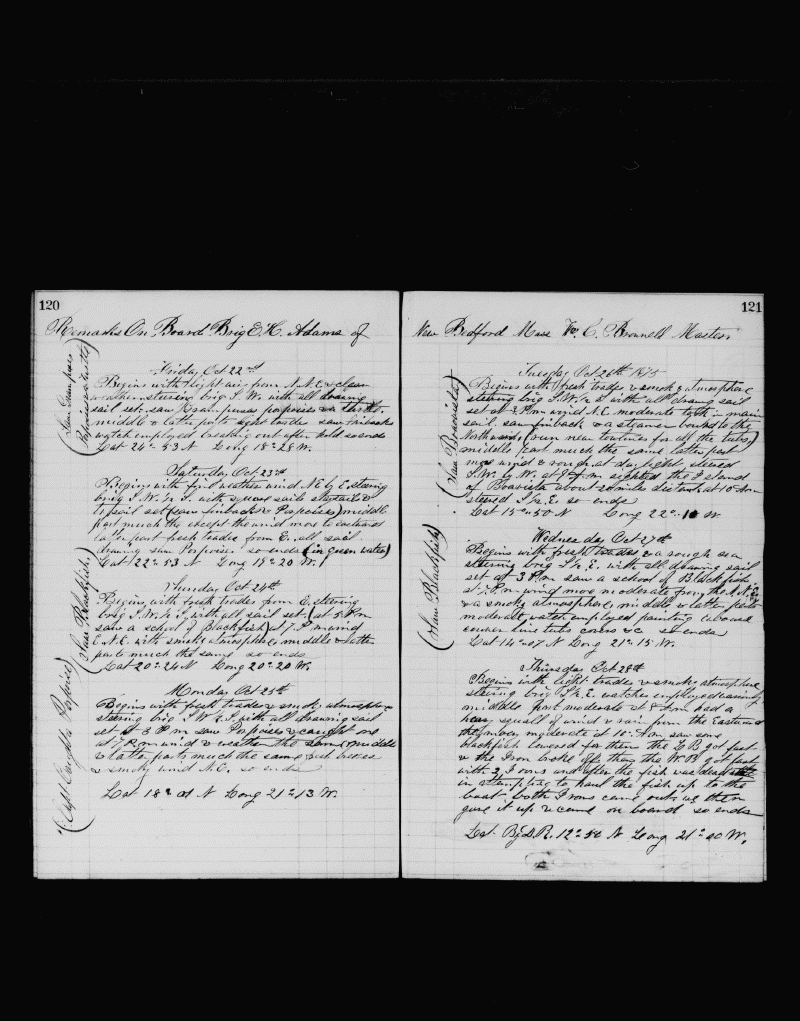 120
Remarks On Board Brig E. H. Adams of
(Saw Grampuses
Porpoises & turtle)
Friday Oct 22nd
Begins with light airs from N.N.E. & clear
weather steering brig S.W. with all drawing
sail set. saw Grampuses porpoises & a turtle.
middle & latter parts light trades saw finbacks
watch employed breaking out after hold so ends
Lat 24" 53 N Long 18" 28 W.
Saturday Oct 23rd
Begins with fine weather wind N.E. by E. steering
brig S.W. by S. with
sail set (saw finback & Porpoises) middle
part much the same except the wind more to eastward
latter part fresh trades from E. all sail
drawing saw Porpoises. so ends (in green water)
Lat 22" 53 N Long 19" 20 W.
(Saw Blackfish)
Sunday Oct 24th
Begins with fresh trades from E. steering
brig S.W. by S. with all sail set. (at 5 P.m
saw a school of Blackfish) at 7 P.m wind
E.N.E. with smoky atmosphere, middle & latter
parts much the same so ends
Lat 20" 24 N Long 20" 20 W.
(Capt Caught a Porpoise)
Monday Oct 25th
Begins with fresh trades & smoky atmosphere
steering brig S.W. by S. with all drawing sail
set at 3 P.m saw Porpoises & caught one
at 7 P.m wind & weather the same middle
& latter parts much the same
& smoky wind N.E. so ends
Lat 18" 01 N Long 21" 13 W.
121
New Bedford Mass Wm C. Brownell Master
(Saw Boavista)
Tuesday Oct 26th 1875
Begins with fresh trades & smoky atmosphere
steering brig S.W. by S. with all drawing sail
set at 3 P.m wind N.E. moderate took in main
sail. saw finback & a steamer bound to the
Northward, (run new towlines for all the tubs)
middle part much the same latter part
more wind & rough. at daylight steered
S.W. by W. at sighted the Island
of Boavista about 20 miles distant at 10 A.m
steered S. by E. so ends
Lat 15" 50 N Long 22" 10 W
(Saw Blackfish)
Wednesday Oct 27th
Begins with fresh trades & a rough sea
steering brig S. by E. with all drawing sail
set at 3 P.m saw a school of Blackfish
at 7 P.m wind more moderate from the N.N.E.
& a smoky atmosphere, middle & latter parts
moderate, watch employed painting inboard
line tubs &c so ends
Lat 14" 07 N Long 21" 15 W.
Thursday Oct 28th
Begins with light trades & smoky atmosphere
steering brig S. by E. watches employed
middle part moderate at 8 A.m had a
heavy squall of wind & rain from the Eastward
then moderate at 10 A.m saw some
blackfish lowered for them the L B got fast
& the Iron broke off then the W.B got fast
with 2 Irons and after the fish was dead
in attempting to haul the fish up to the
boat both Irons came out, we then
gave it up & came on board so ends
Lat. By D.R. 12" 50 N Long 21" 20 W.